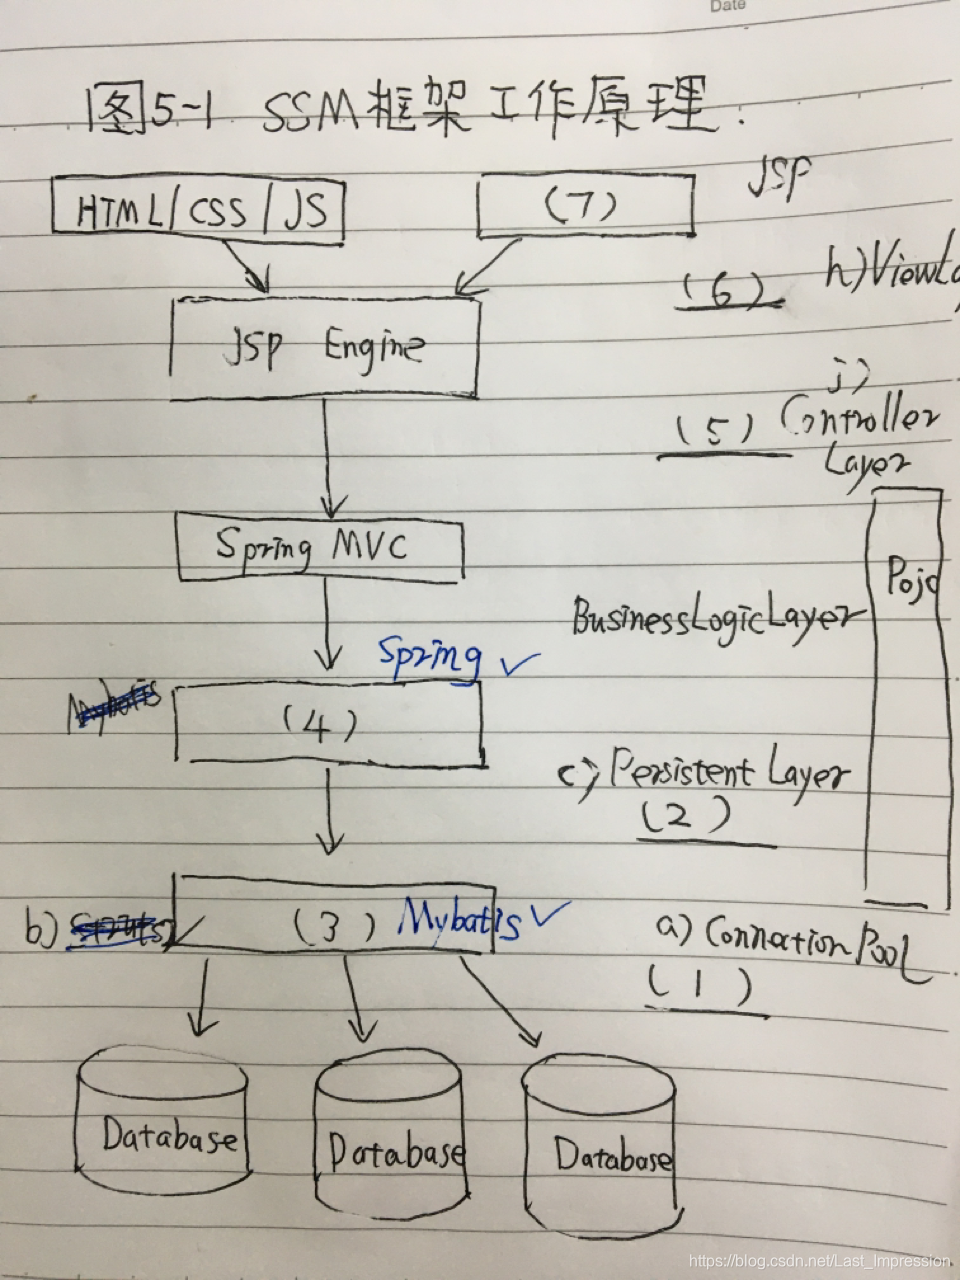 Date
图5-1 SSM框架工作原理.
HTML/CSS/JS
(7)
JSP
(6)
h)ViewLa
JSP Engine
j)
(5) Controller
Layer
Spring MVC
Pojo
BusinessLogicLayer
Spring ✓
Mybatis
(4)
c) Persistent Layer
(2)
b)
(3) Mybatis ✓
a) Connection Pool
(1)
Database
Database
Database
https://blog.csdn.net/Last_Impression